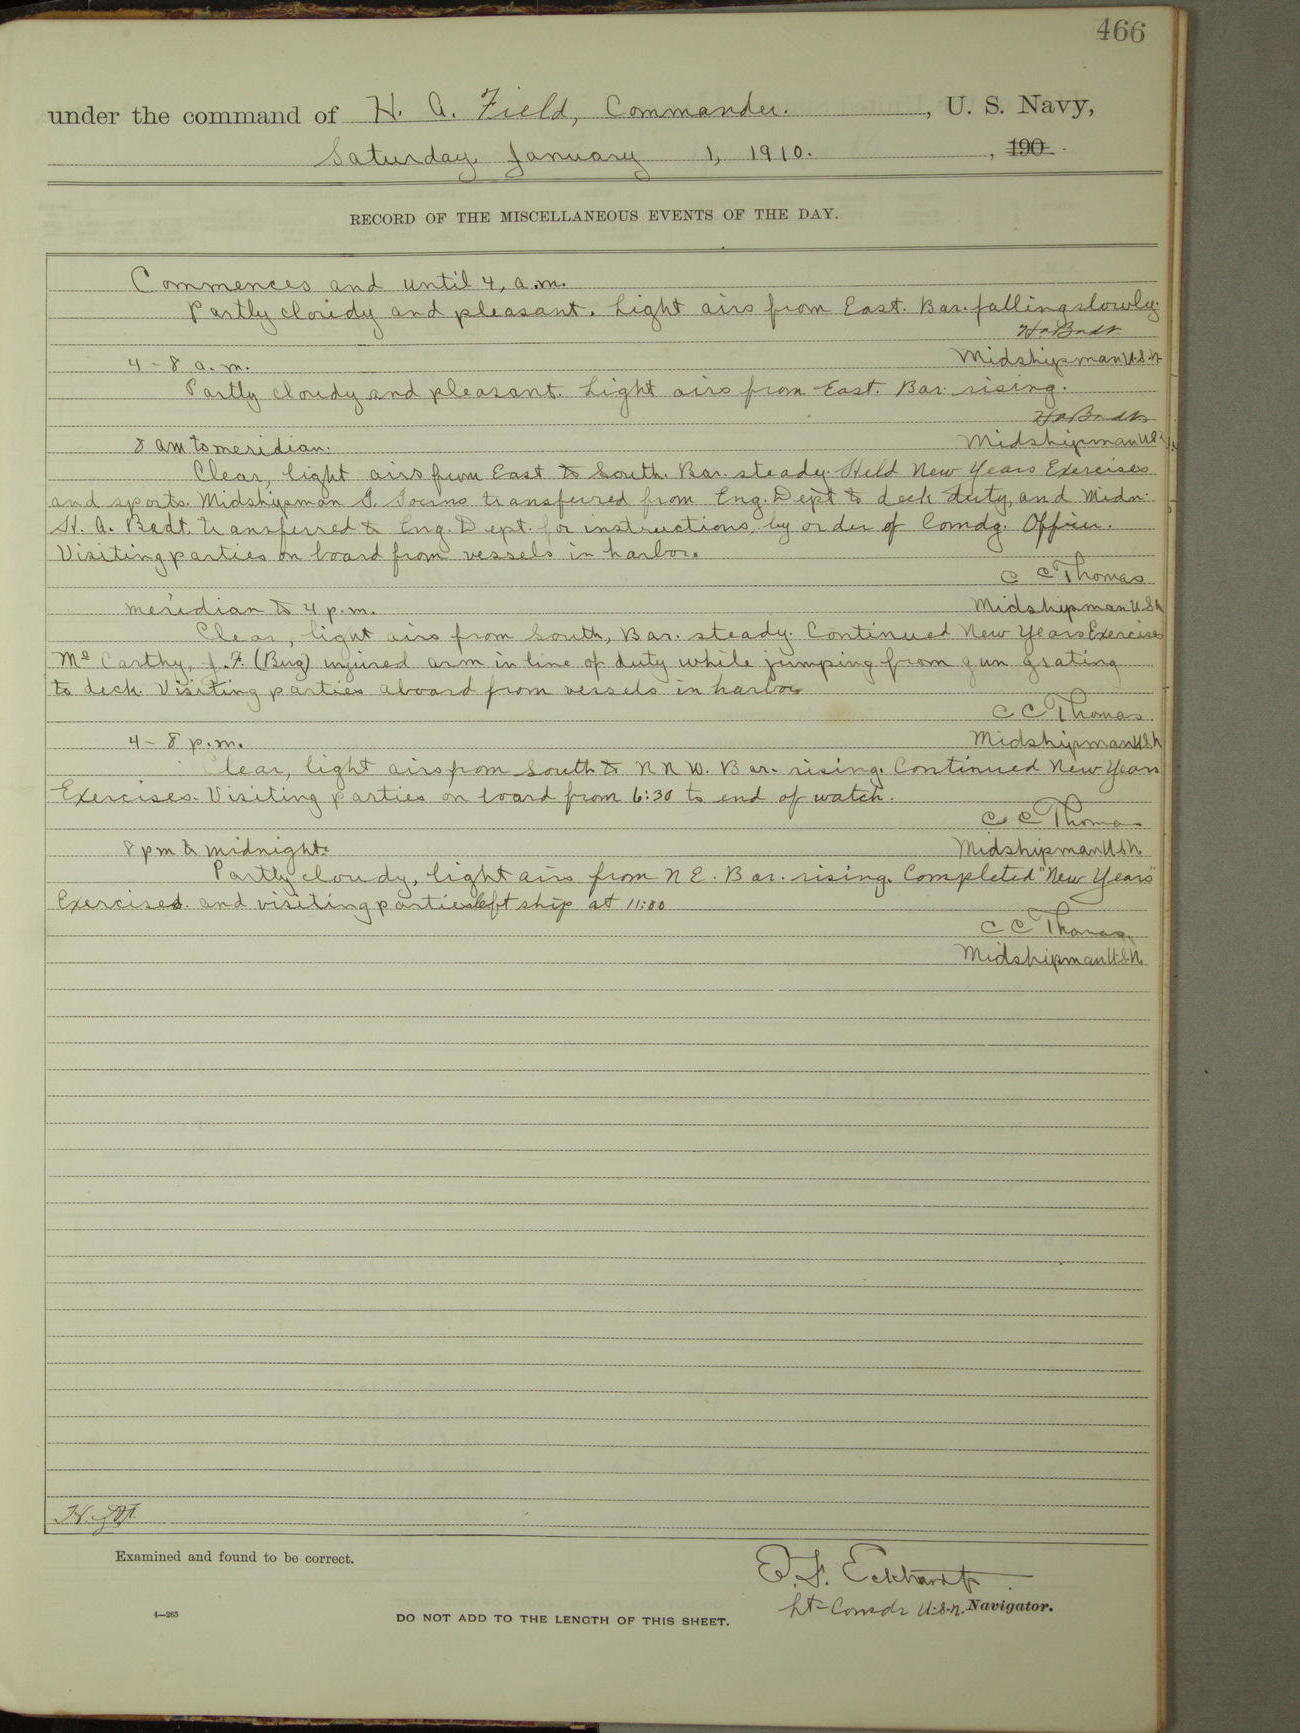 466
under the command of H. A. Field, Commander. , U. S. Navy,
Saturday January 1, 1910. , 190 .
RECORD OF THE MISCELLANEOUS EVENTS OF THE DAY.
Commences and until 4, a.m.
Partly cloudy and pleasant. Light airs from East. Bar. falling slowly.
H A Badt
4 - 8 a. m. Midshipman U.S.N.
Partly cloudy and pleasant. Light airs from East. Bar. rising.
H A Badt
8 am to meridian. Midshipman U S N
Clear, light airs from East to South. Bar. steady. Held New Years Exercises
and sports. Midshipman transferred from Eng. Dept to deck duty, and Midn.
H. A. Badt. transferred to Eng. Dept. for instructions, by order of Comdg. Officer.
Visiting parties on board from vessels in harbor.
C C Thomas
meridian to 4 p.m. Midshipman U.S.N.
Clear, light airs from South, Bar. steady. Continued New Years Exercises
Mc Carthy, J. F. (Bug) injured arm in line of duty while jumping from gun grating
to deck. Visiting parties aboard from vessels in harbor
C C Thomas
4 - 8 p.m. Midshipman U.S.N
Clear, light airs from South to N N W. Bar. rising. Continued New Years
Exercises. Visiting parties on board from 6:30 to end of watch.
C C Thomas
8 pm to midnight. Midshipman U.S.N.
Partly cloudy, light airs from N E. Bar. rising. Completed "New Years"
Exercises. and visiting parties left ship at 11:00
C C Thomas
Midshipman U.S.N.
Examined and found to be correct.
E. F. Eckhardt
Lt-Comdr U.S.N. Navigator.
4—265
DO NOT ADD TO THE LENGTH OF THIS SHEET.